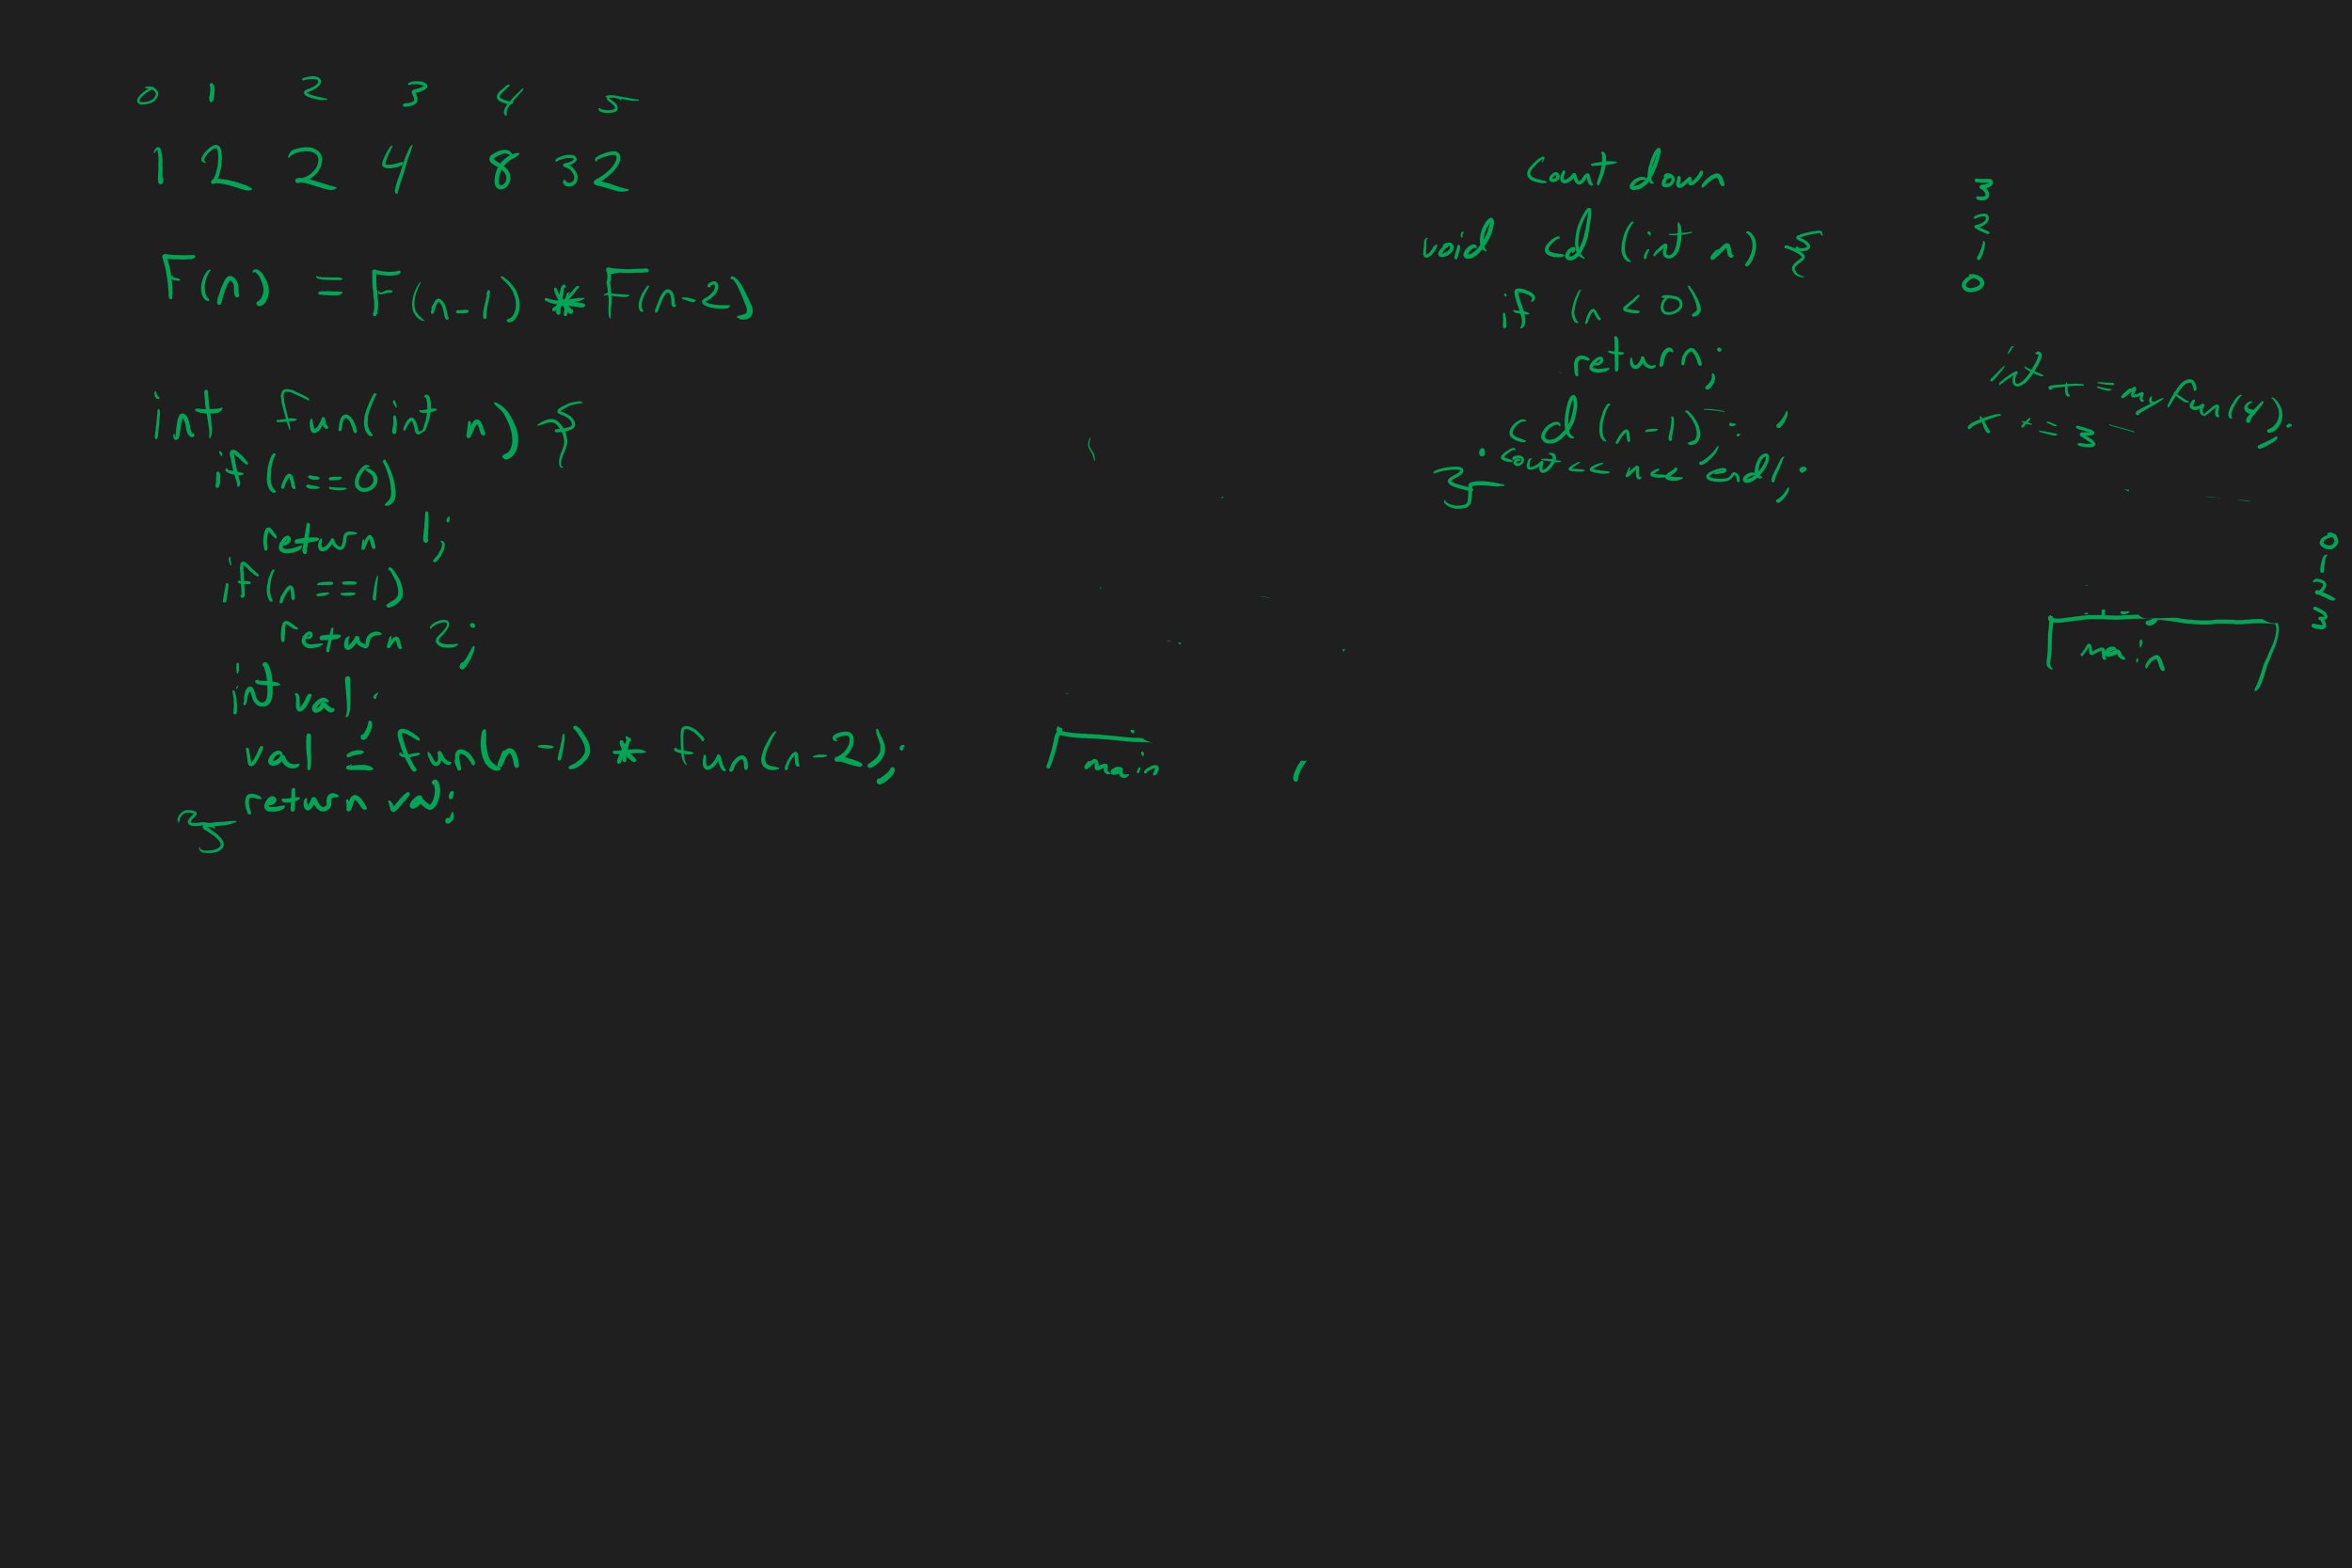 0 1 2 3 4 5
1 2 2 4 8 32
F(n) = F(n-1) * F(n-2)
int fun(int n) {
if (n==0)
return 1;
if (n==1)
return 2;
int val;
val = fun(n-1) * fun(n-2);
return val;
}
main
count down
void cd(int n) {
if (n<0)
return;
cd(n-1);
cout << n << endl;
}
3
2
1
0
int
0
1
2
3
main